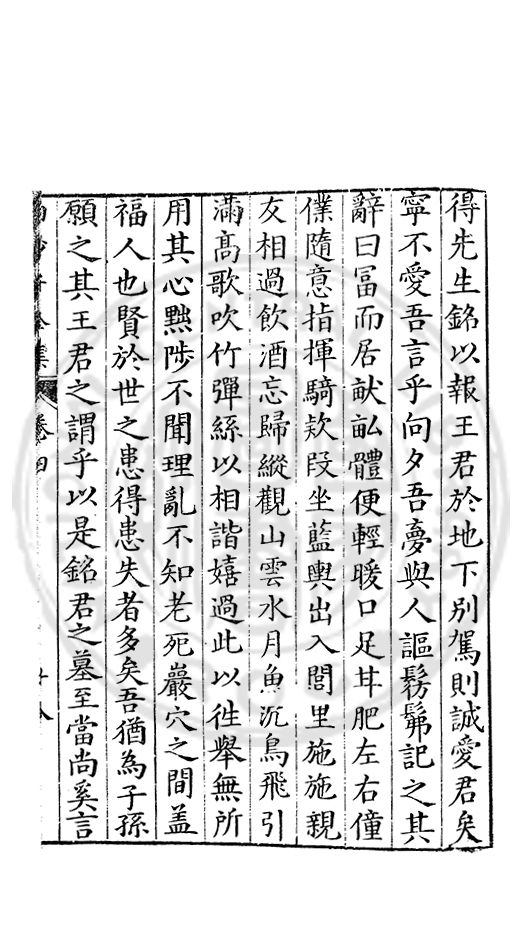 得先生銘以報王君於地下別駕則誠愛君矣
寧不愛吾言乎向夕吾夢與人謳髣髴記之其
辭曰冨而居畎畝體便輕暖口足甘肥左右僮
僕隨意指揮騎欵段坐藍輿出入閭里施施親
友相過飲酒忘歸縱觀山雲水月魚沉鳥飛引
滿髙歌吹竹彈絲以相諧嬉過此以徃舉無所
用其心黜陟不聞理亂不知老死巖穴之間盖
福人也賢於世之患得患失者多矣吾猶為子孫
願之其王君之謂乎以是銘君之墓至當尚奚言
集 卷四 十八